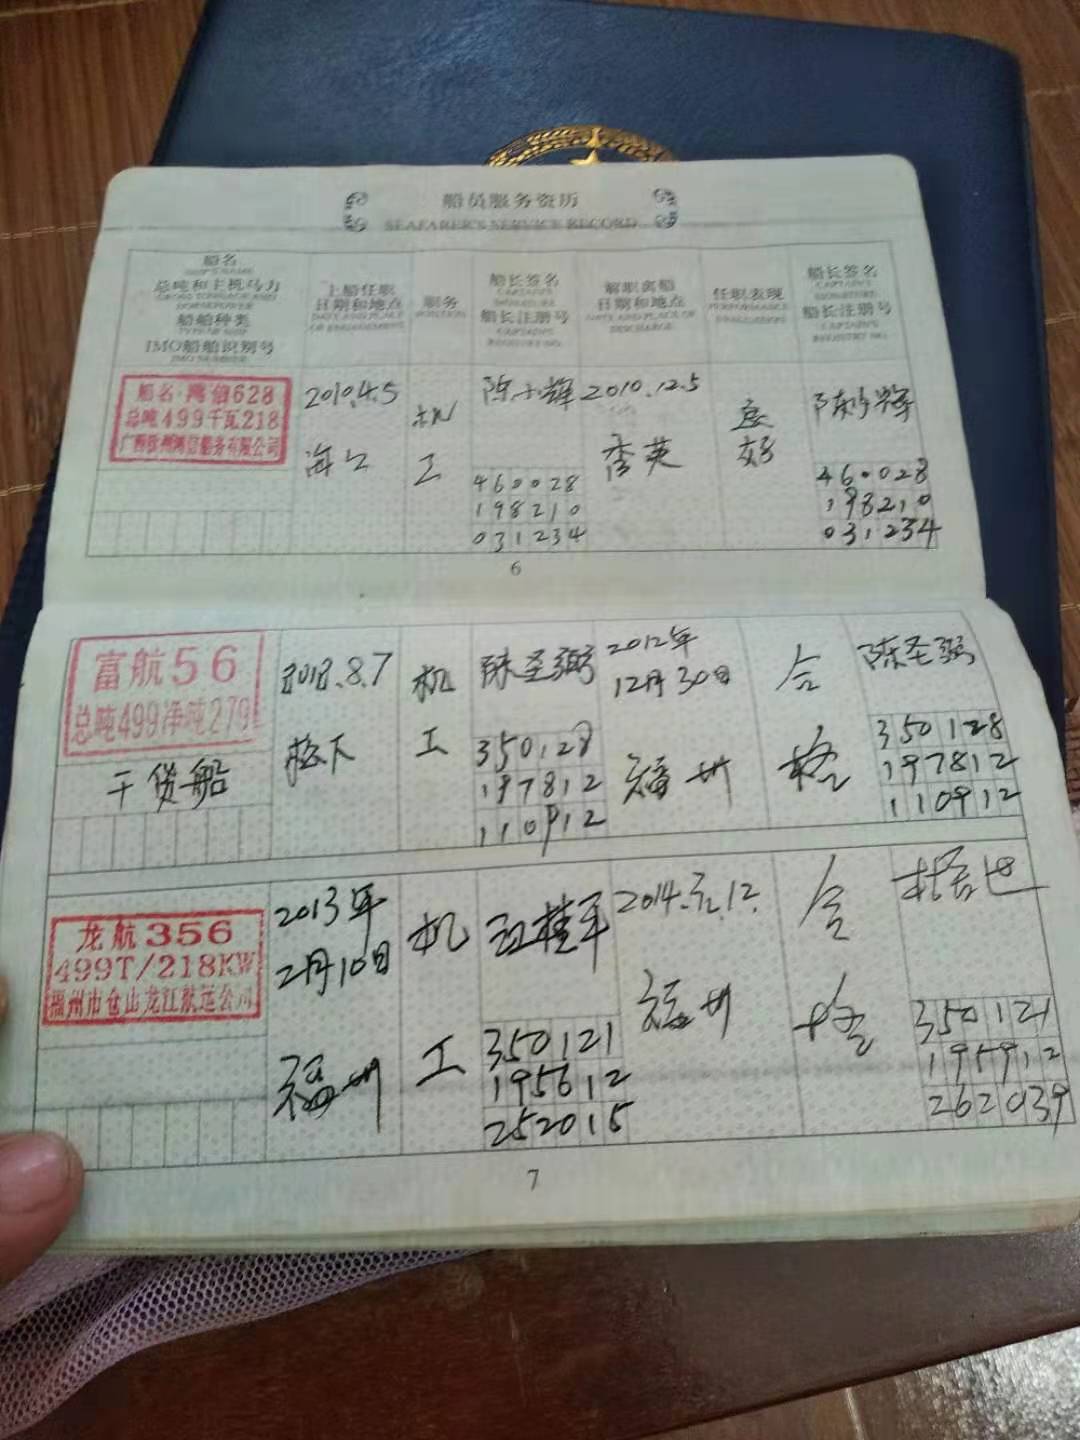 船员服务资历
SEAFARER'S SERVICE RECORD
船名
SHIP'S NAME
总吨和主机马力
GROSS TONNAGE AND
HORSEPOWER
船舶种类
TYPE OF SHIP
IMO船舶识别号
IMO NUMBER
上船任职
日期和地点
DATE AND PLACE
OF ENGAGEMENT
职务
POSITION
船长签名
CAPTAIN'S
SIGNATURE
船长注册号
CAPTAIN'S
REGISTRY NO.
解职离船
日期和地点
DATE AND PLACE OF
DISCHARGE
任职表现
PERFORMANCE
EVALUATION
船长签名
CAPTAIN'S
SIGNATURE
船长注册号
CAPTAIN'S
REGISTRY NO.
船名·鸿信628
总吨499千瓦218
广西钦州鸿信船务有限公司
2010.4.5
海口
机
工
陈小辉
460028
198210
031234
2010.12.5
秀英
良
好
460028
198210
031234
6
富航56
总吨499净吨279
干货船
2012.8.7
松下
机
工
陈圣弼
350128
197812
110912
2012年
12月30日
福州
合
格
陈圣弼
350128
197812
110912
龙航356
499T/218KW
福州市仓山龙江航运公司
2013年
2月10日
福州
机
工
桂军
350121
195612
252015
2014.
12.
福州
合
格
350121
195912
262039
7